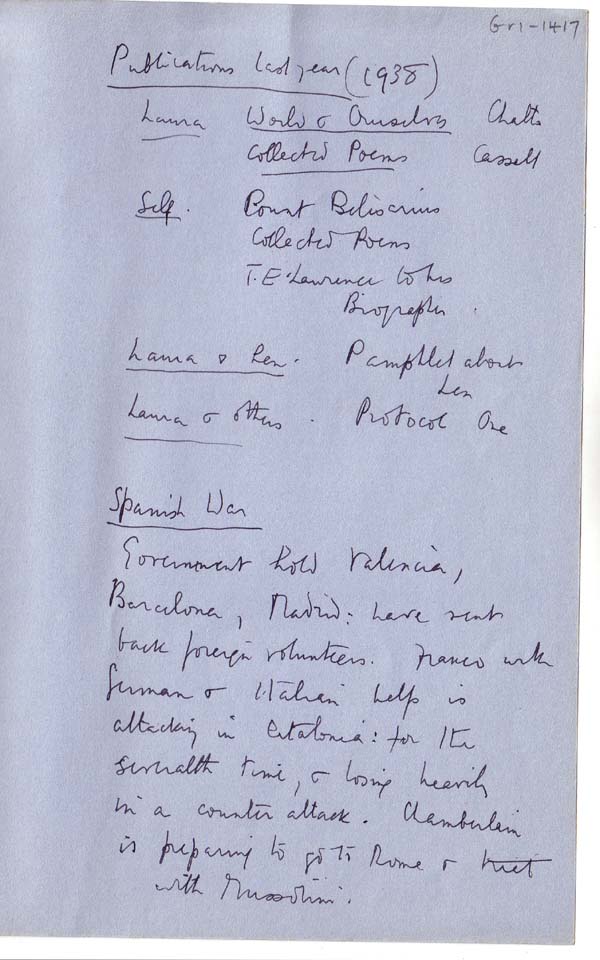 Gr1-1417
Publications last year (1938)
Laura World & Ourselves Chatto
Collected Poems Cassell
Self. Count Belisarius
Collected Poems
T.E. Lawrence to his
Biographer.
Laura & Len. Pamphlet about
Len
Laura & others. Protocol One
Spanish War
Government hold Valencia,
Barcelona, Madrid: have sent
back foreign volunteers. Franco with
German & Italian help is
attacking in Catalonia: for the
severalth time, & losing heavily
in a counter attack. Chamberlain
is preparing to go to Rome &
with Mussolini.